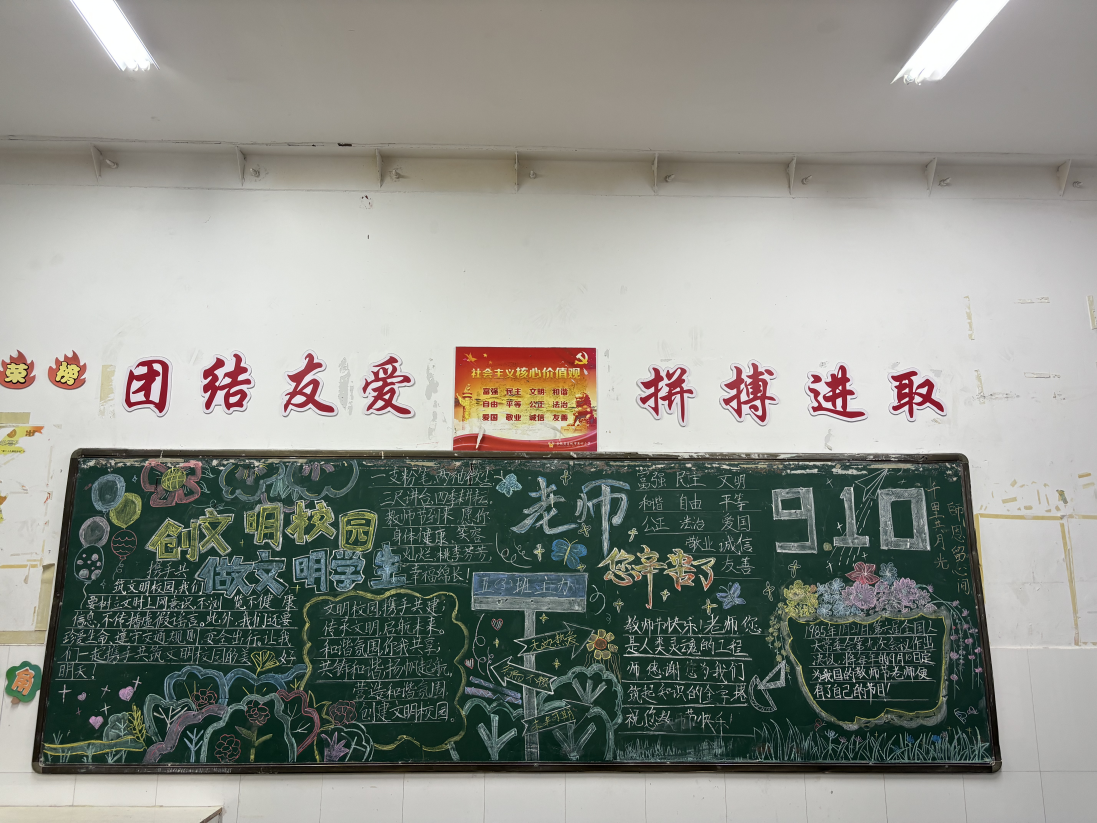 荣榜
团结友爱
拼搏进取
社会主义核心价值观
富强 民主 文明 和谐
自由 平等 公正 法治
爱国 敬业 诚信 友善
角
创文明校园
做文明学生
携手共
筑文明校园,我们
要树立文明上网意识,不浏览不健康
信息,不传播虚假谣言。此外,我们还要
珍爱生命,遵守交通规则,安全出行,让我
们一起携手共筑文明校园的美好
明天!
三尺讲台,四季耕耘,
教师节到来,愿你
身体健康,笑容
灿烂,桃李芬芳
幸福绵长
文明校园携手共建,
传承文明启航未来。
和谐氛围你我共享,
共铸和谐扬帆起航。
营造和谐氛围,
创建文明校园。
老师
您辛苦了
班主办
富强 民主 文明
和谐 自由 平等
公正 法治 爱国
敬业 诚信
友善
教师节快乐!老师,您
是人类灵魂的工程
师,感谢您为我们
筑起知识的金字塔
祝你教师节快乐!
9.10
师恩留心间
1985年1月21日第六届全国人
大常委会第九次会议作出
决议,将每年的9月10日定
为我国的教师节,老师便
有了自己的节日!